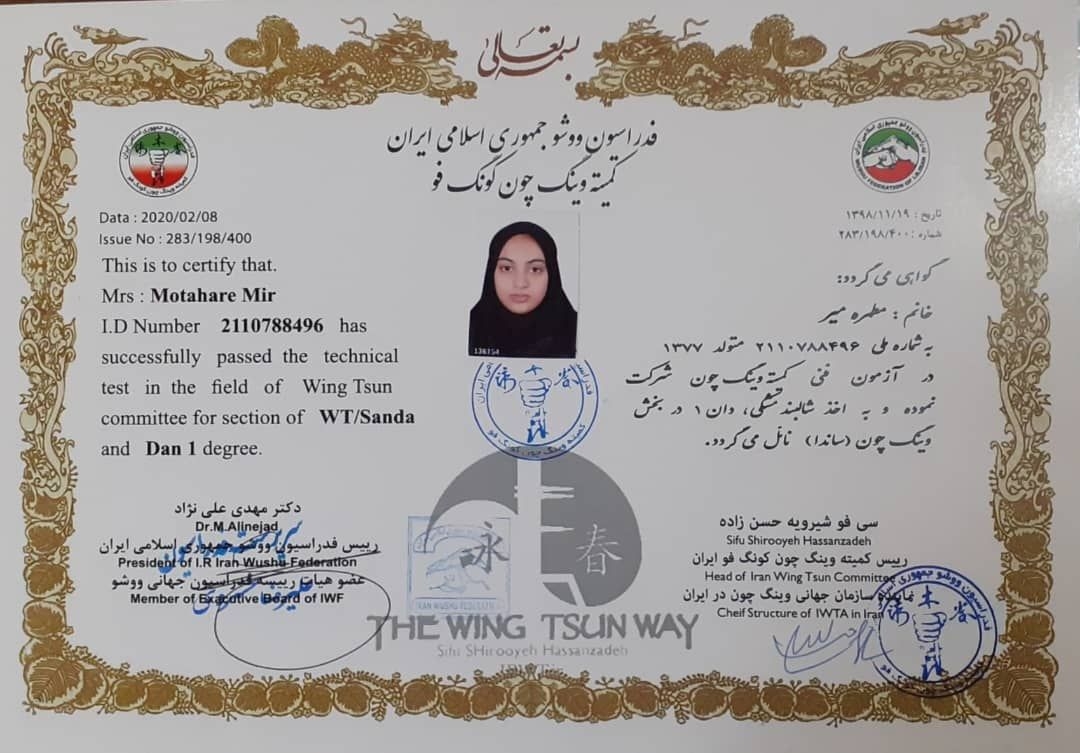 بسمه تعالی
فدراسیون ووشو جمهوری اسلامی ایران
کمیته وینگ چون کونگ فو
Data : 2020/02/08
Issue No : 283/198/400
This is to certify that.
Mrs : Motahare Mir
I.D Number 2110788496 has
successfully passed the technical
test in the field of Wing Tsun
committee for section of WT/Sanda
and Dan 1 degree.
تاریخ : ۱۳۹۸/۱۱/۱۹
شماره : ۲۸۳/۱۹۸/۴۰۰
گواهی می گردد:
خانم : مطهره میر
به شماره ملی ۲۱۱۰۷۸۸۴۹۶ متولد ۱۳۷۷
در آزمون فنی کمیته وینگ چون شرکت
نموده و به اخذ شالبند مشکی، دان ۱ در بخش
وینگ چون (ساندا) نائل می گردد.
138154
دکتر مهدی علی نژاد
Dr.M.Alinejad
رییس فدراسیون ووشو جمهوری اسلامی ایران
President of I.R Iran Wushu Federation
عضو هیات رییسه فدراسیون جهانی ووشو
Member of Executive Board of IWF
سی فو شیرویه حسن زاده
Sifu Shirooyeh Hassanzadeh
رییس کمیته وینگ چون کونگ فو ایران
Head of Iran Wing Tsun Committee
نماینده سازمان جهانی وینگ چون در ایران
Cheif Structure of IWTA in Iran
永 春
IRAN WUSHU FEDERATION
THE WING TSUN WAY
Sifu SHirooyeh Hassanzadeh
کمیته وینگ چون کونگ فو
WUSHU FEDERATION OF I.R.IRAN